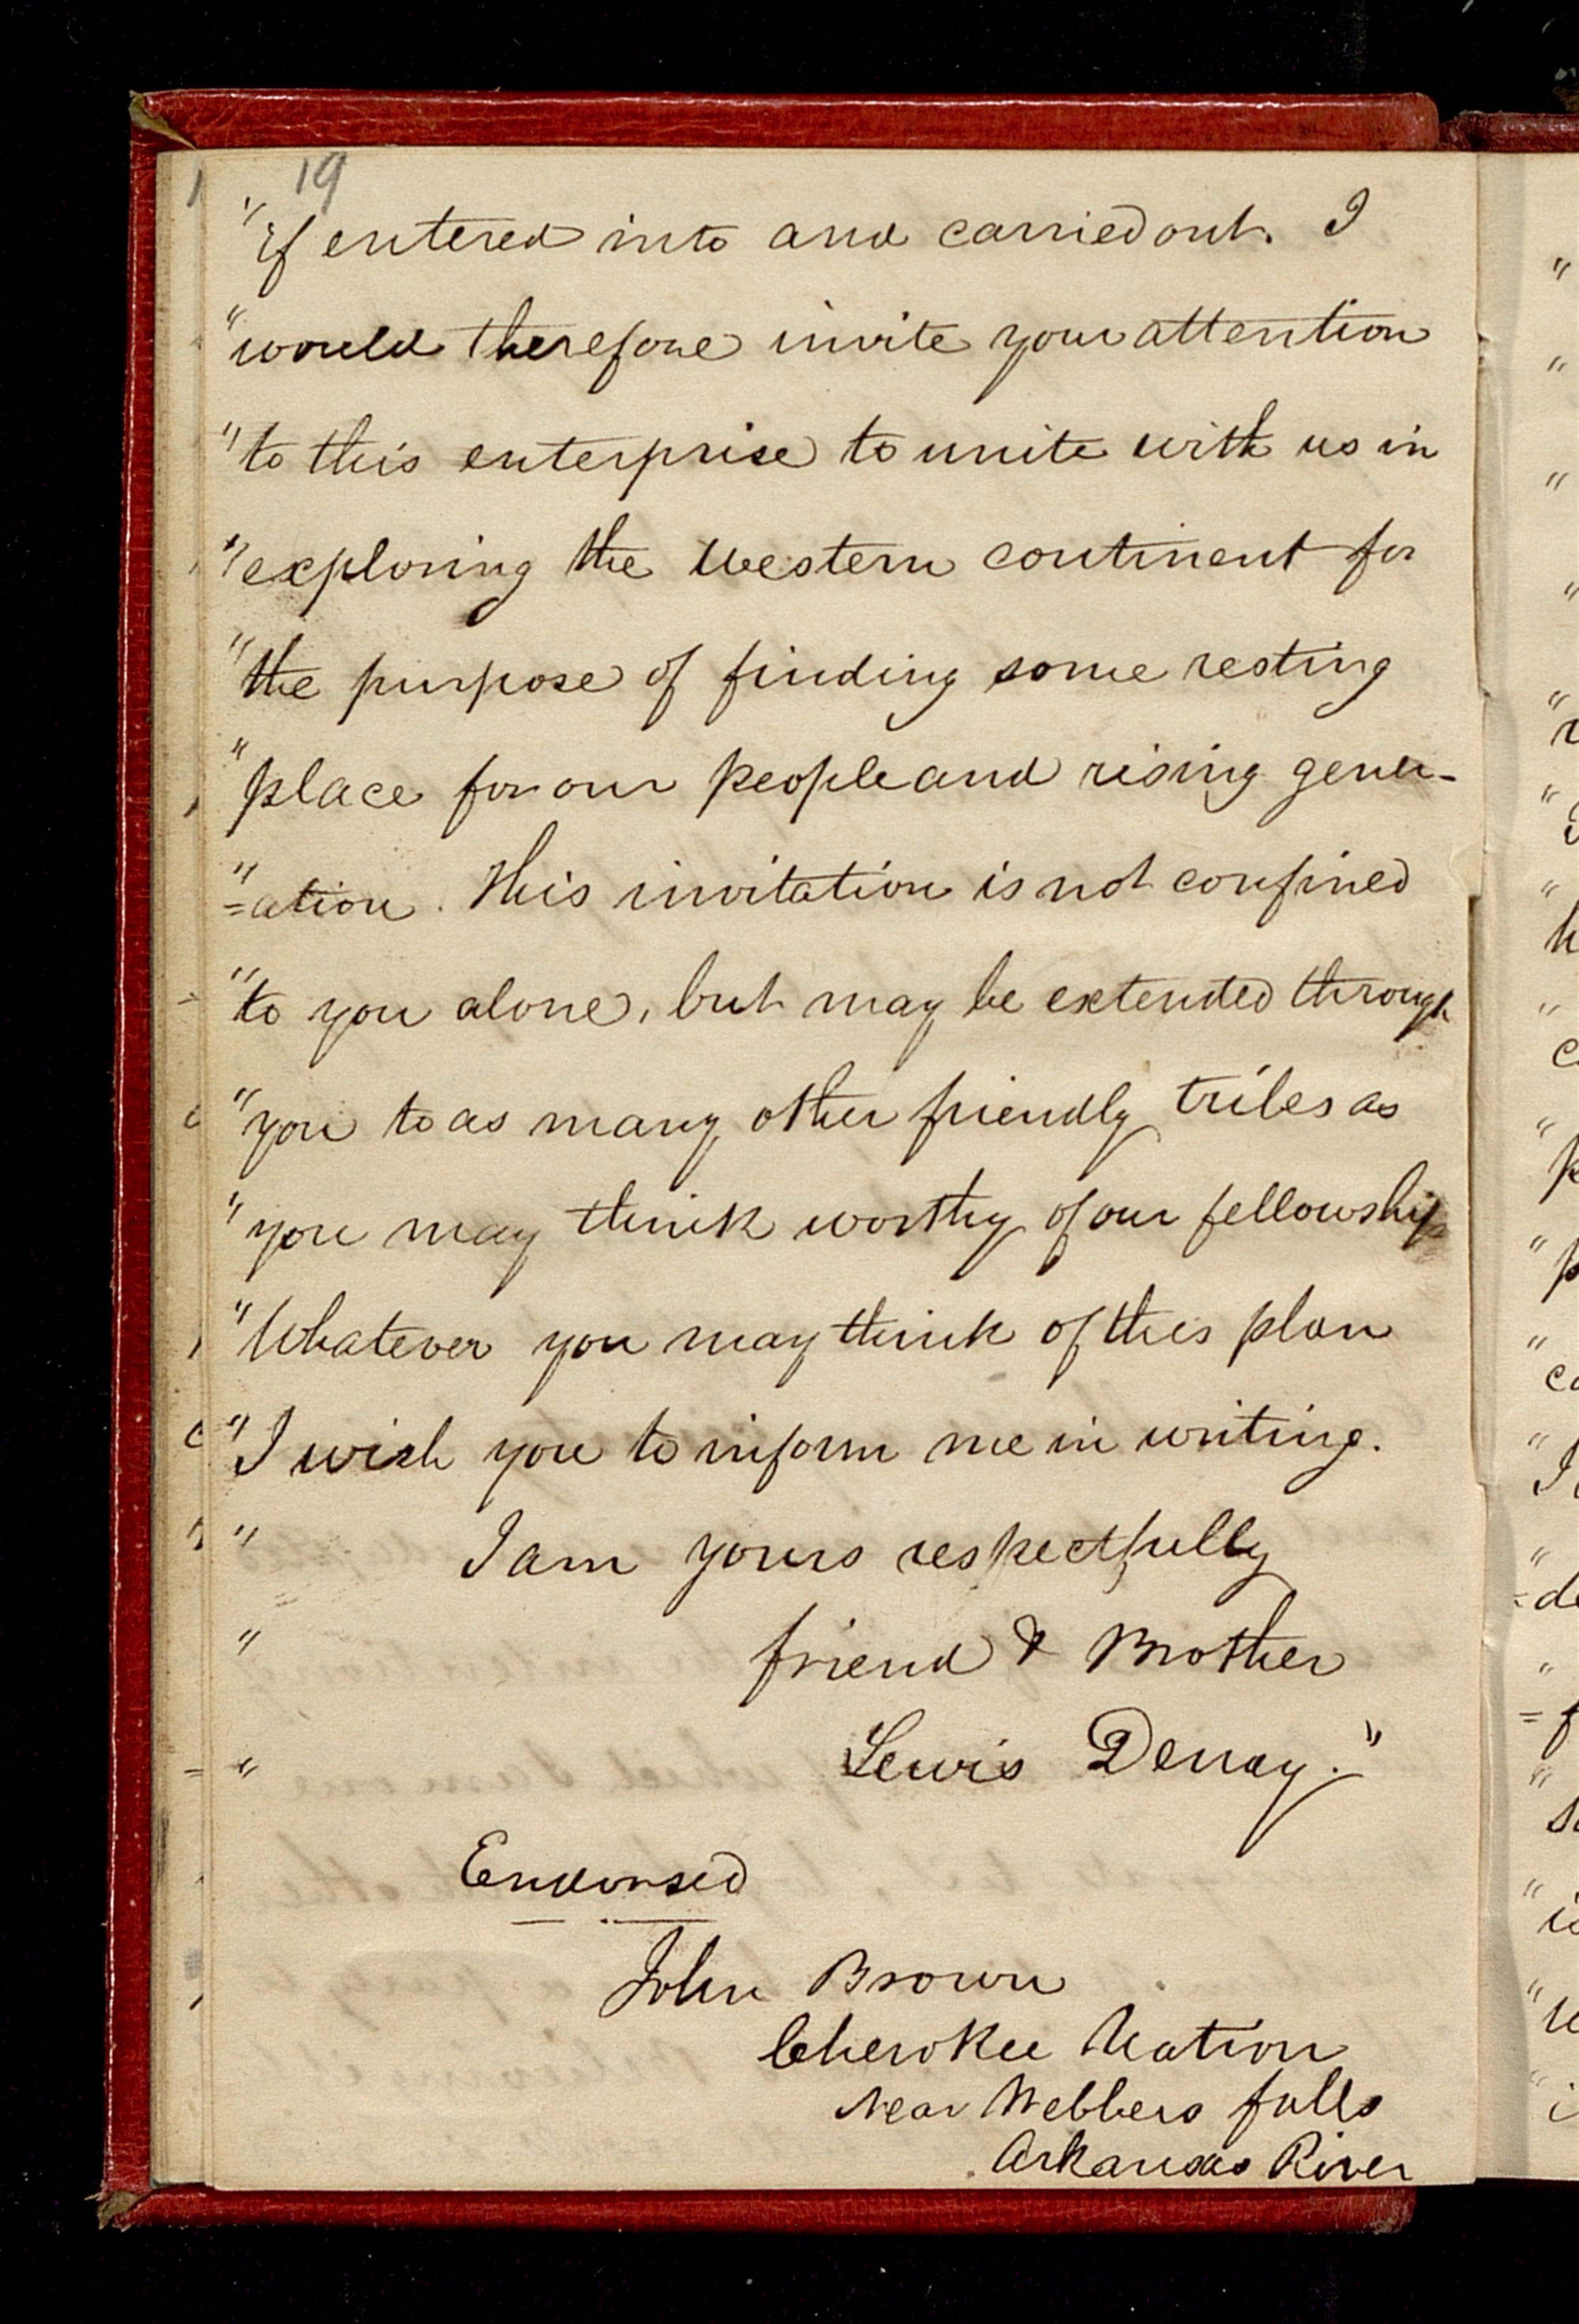 19
"if entered into and carried out. I
"would therefore invite your attention
"to this enterprise to unite with us in
"exploring the Western continent for
"the purpose of finding some resting
"place for our people and rising gener-
"=ation. This invitation is not confined
"to you alone, but may be extended through
"you to as many other friendly tribes as
"you may think worthy of our fellowship
"Whatever you may think of this plan
"I wish you to inform me in writing.
" I am yours respectfully
" friend & Brother
" Lewis Denay."
Endorsed
John Brown
Cherokee Nation
near Webbers falls
Arkansas River